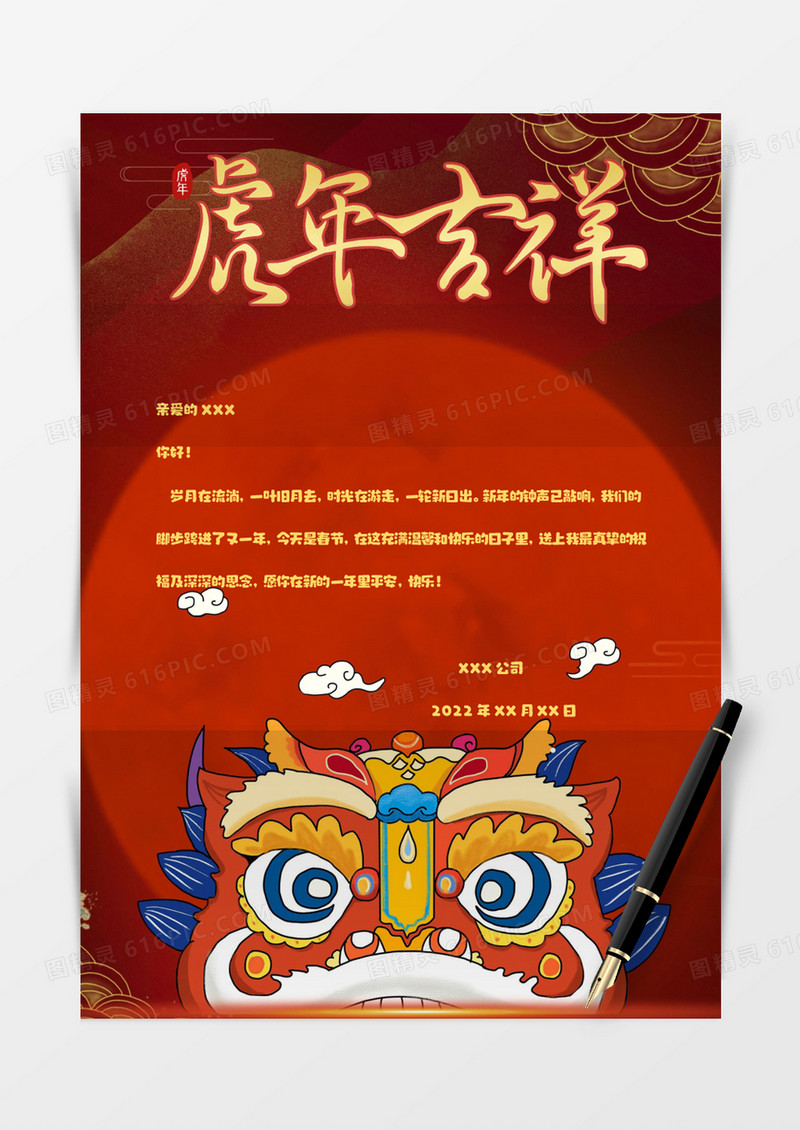 虎年
虎年吉祥
亲爱的 XXX
你好!
岁月在流淌，一叶旧月去，时光在游走，一轮新日出。新年的钟声已敲响，我们的
脚步跨进了又一年，今天是春节，在这充满温馨和快乐的日子里，送上我最真挚的祝
福及深深的思念，愿你在新的一年里平安，快乐!
XXX 公司
2022 年 XX 月 XX 日
图精灵 616PIC.COM